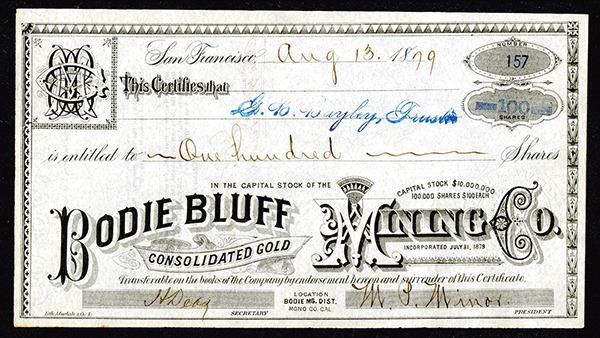 San Francisco, Aug 13. 1879
NUMBER
157
This Certifies that
G. B. Bayley, Trustee
100
SHARES
is entitled to One hundred Shares
IN THE CAPITAL STOCK OF THE
CAPITAL STOCK $10,000,000
100.000 SHARES $100 EACH
BODIE BLUFF
CONSOLIDATED GOLD
MINING CO.
INCORPORATED JULY 31, 1879
Transferable on the books of the Company by endorsement hereon and surrender of this Certificate.
LOCATION
BODIE MG. DIST.
MONO CO. CAL.
SECRETARY
PRESIDENT